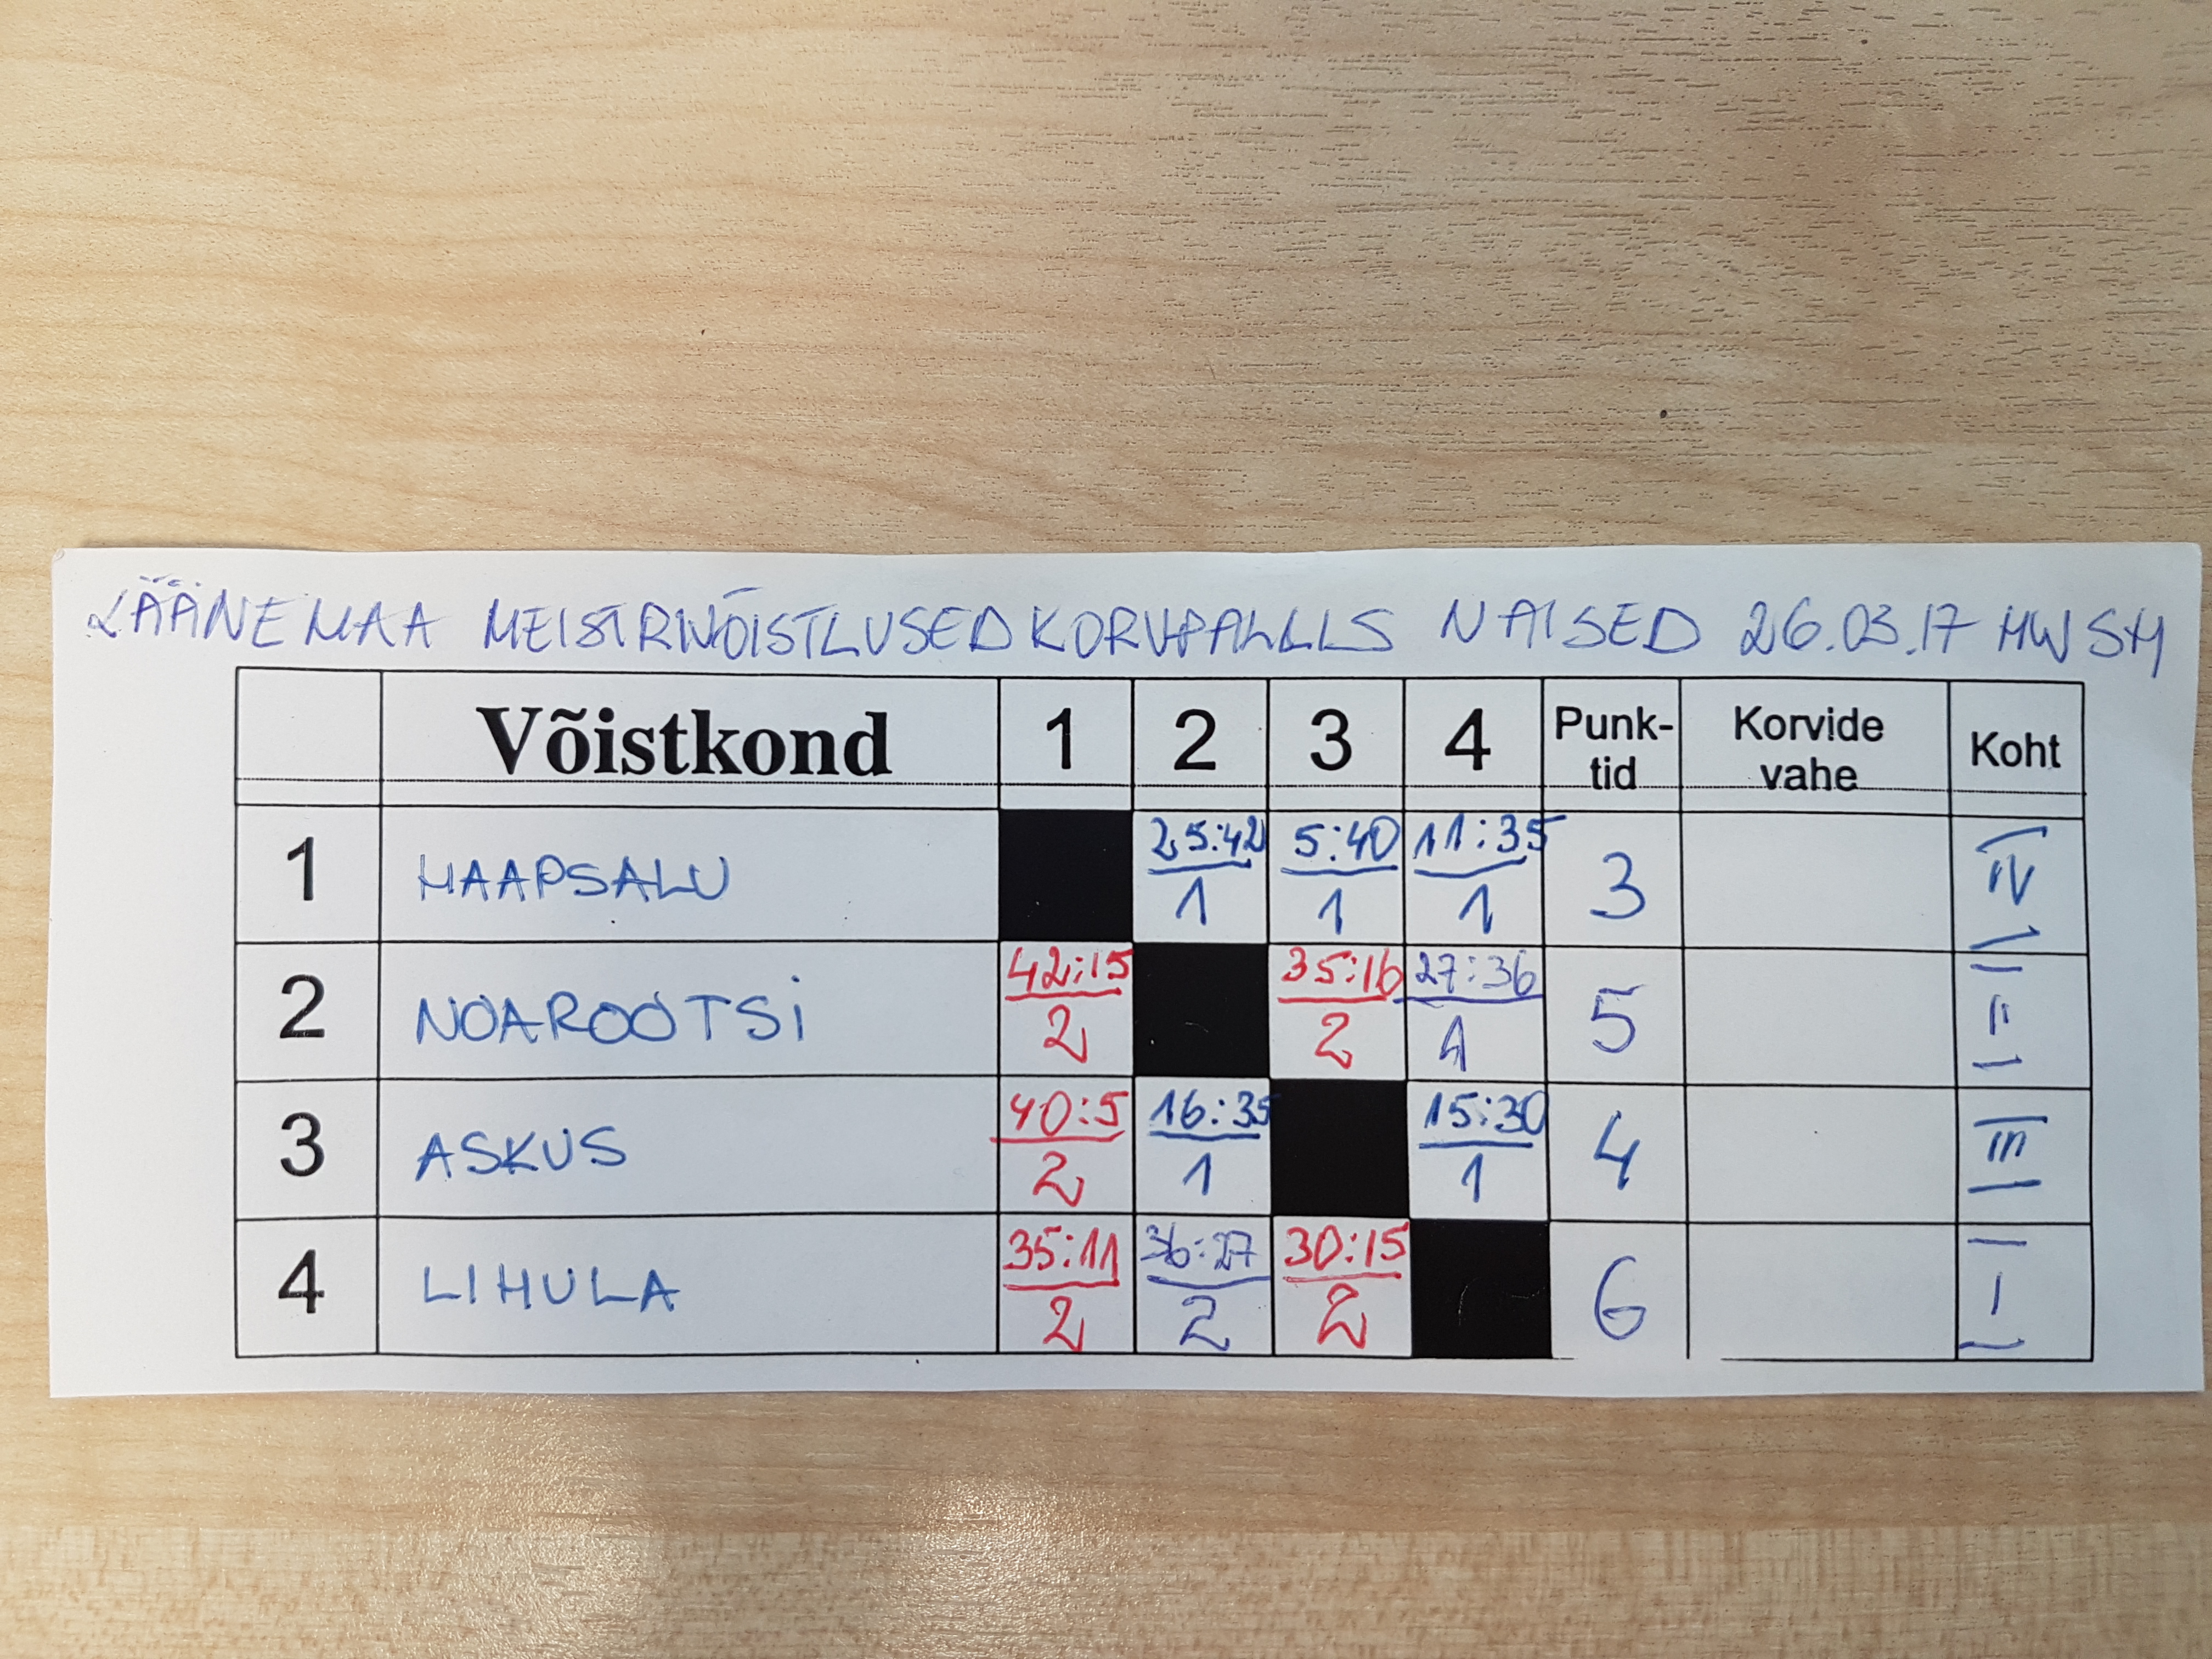 LÄÄNEMAA MEISTRIVÕISTLUSED KORVPALLIS NAISED 26.03.17
Võistkond 1 2 3 4 Punk-tid Korvide vahe Koht
1 HAAPSALU 25:42 1 5:40 1 11:35 1 3 IV
2 NOAROOTSI 42:15 2 35:16 2 27:36 1 5 II
3 ASKUS 40:5 2 16:35 1 15:30 1 4 III
4 LIHULA 35:11 2 36:27 2 30:15 2 6 I